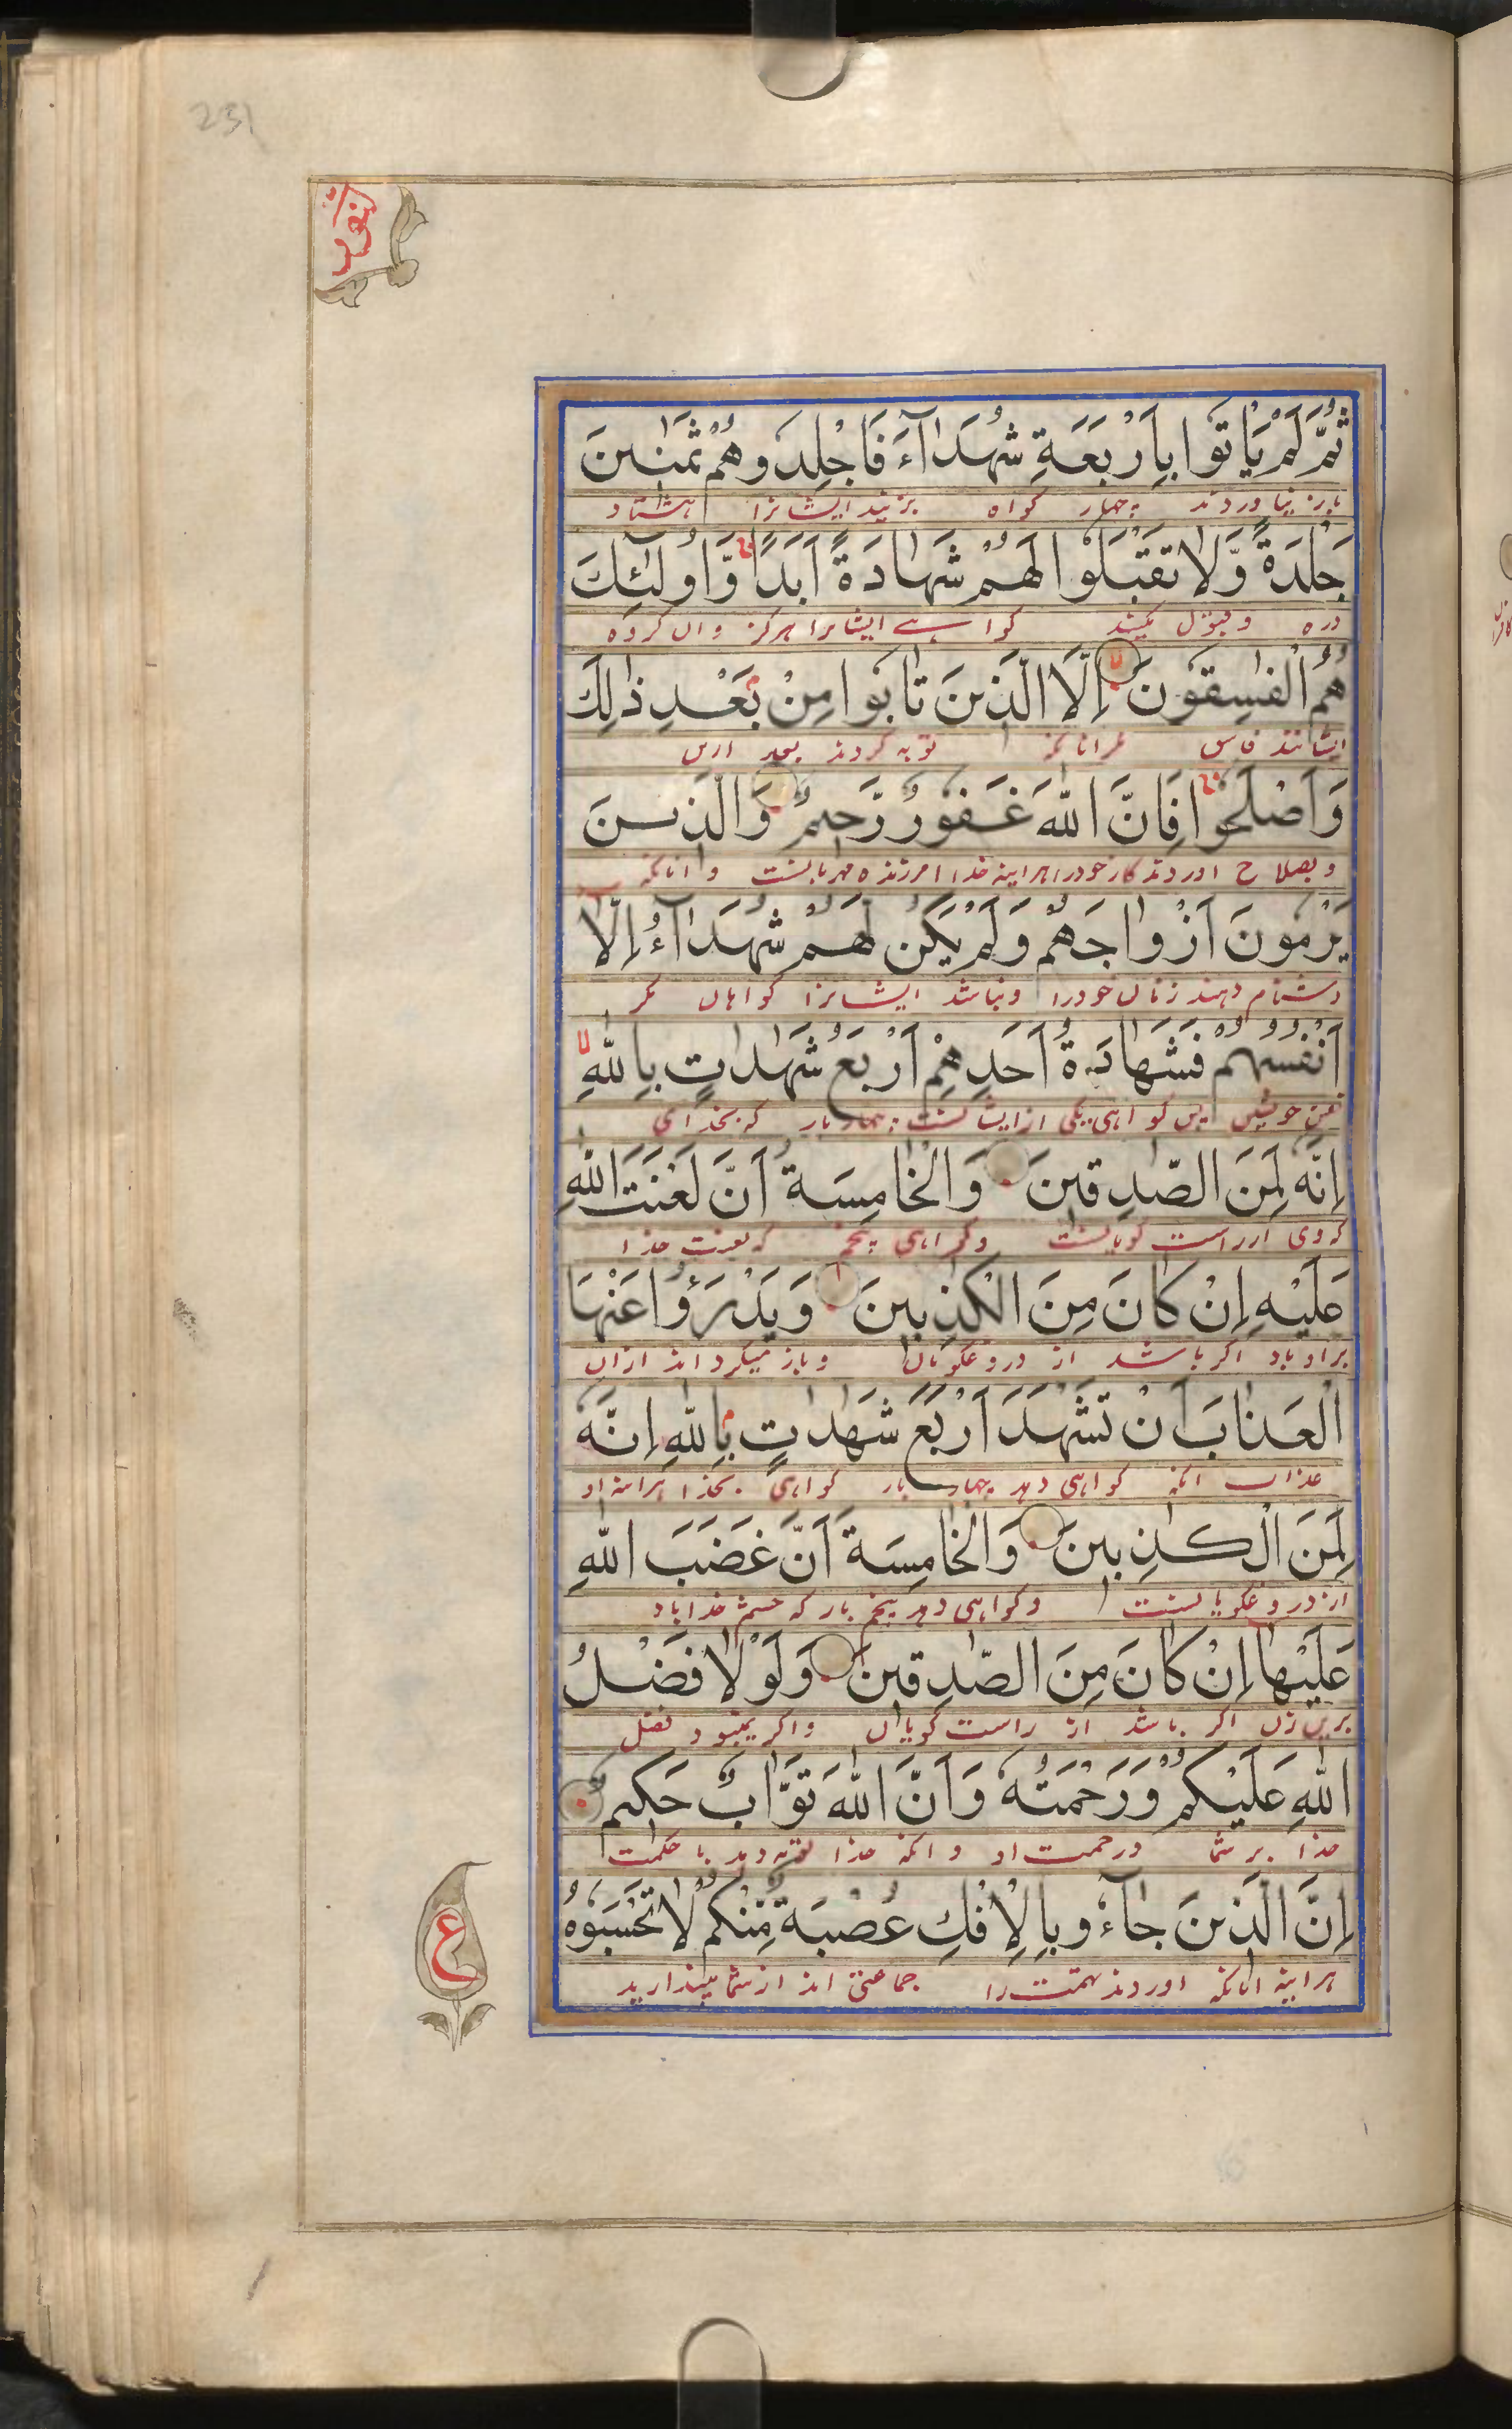 231
ثُمَّ لَمْ يَاْتُوْا بِاَرْبَعَةِ شُهَدَآءَ فَاجْلِدُوْهُمْ ثَمٰنِيْنَ
باز نیاوردند بچهار کواه بزنید ایشانرا هشتاد
جَلْدَةً وَّلَا تَقْبَلُوْا لَهُمْ شَهَادَةً اَبَدًا وَّاُولٰٓئِكَ
دره و قبول مکنید کواهی ایشانرا هرکز وان کروه
هُمُ الْفٰسِقُوْنَ اِلَّا الَّذِيْنَ تَابُوْا مِنْ بَعْدِ ذٰلِكَ
ایشانند فاسق مکر انانکه توبه کردند بعد ازین
وَاَصْلَحُوْا فَاِنَّ اللّٰهَ غَفُوْرٌ رَّحِيْمٌ وَالَّذِيْنَ
و بصلاح اوردند کار خودرا هراینه خدا امرزنده مهربانست و انانکه
يَرْمُوْنَ اَزْوَاجَهُمْ وَلَمْ يَكُنْ لَهُمْ شُهَدَآءُ اِلَّا
دشنام دهند زنان خودرا ونباشد ایشانرا کواهان مکر
اَنْفُسُهُمْ فَشَهَادَةُ اَحَدِهِمْ اَرْبَعُ شَهٰدٰتٍ بِاللّٰهِ
خویش پس کواهی یکی از ایشانست چهار بار که بخدای
اِنَّهٗ لَمِنَ الصّٰدِقِيْنَ وَالْخَامِسَةُ اَنَّ لَعْنَتَ اللّٰهِ
که وی از راست کویانست و کواهی پنجم که لعنت خدا
عَلَيْهِ اِنْ كَانَ مِنَ الْكٰذِبِيْنَ وَيَدْرَؤُا عَنْهَا
براو باد اکر باشد از دروغکویان و باز میکرداند ازان
الْعَذَابَ اَنْ تَشْهَدَ اَرْبَعَ شَهٰدٰتٍ بِاللّٰهِ اِنَّهٗ
عذاب انکه کواهی دهد چهار بار کواهی بخدا هراینه او
لَمِنَ الْكٰذِبِيْنَ وَالْخَامِسَةَ اَنَّ غَضَبَ اللّٰهِ
از دروغکویانست و کواهی دهد پنجم بار که خشم خدا باد
عَلَيْهَا اِنْ كَانَ مِنَ الصّٰدِقِيْنَ وَلَوْلَا فَضْلُ
برین زن اکر باشد از راست کویان و اکر نمیبود فضل
اللّٰهِ عَلَيْكُمْ وَرَحْمَتُهٗ وَاَنَّ اللّٰهَ تَوَّابٌ حَكِيْمٌ
خدا بر شما ورحمت او و انکه خدا توبه دهد با حکمت
اِنَّ الَّذِيْنَ جَآءُوْ بِالْاِفْكِ عُصْبَةٌ مِّنْكُمْ لَا تَحْسَبُوْهُ
هراینه انانکه اوردند تهمت را جماعتی اند از شما مپندارید
ع